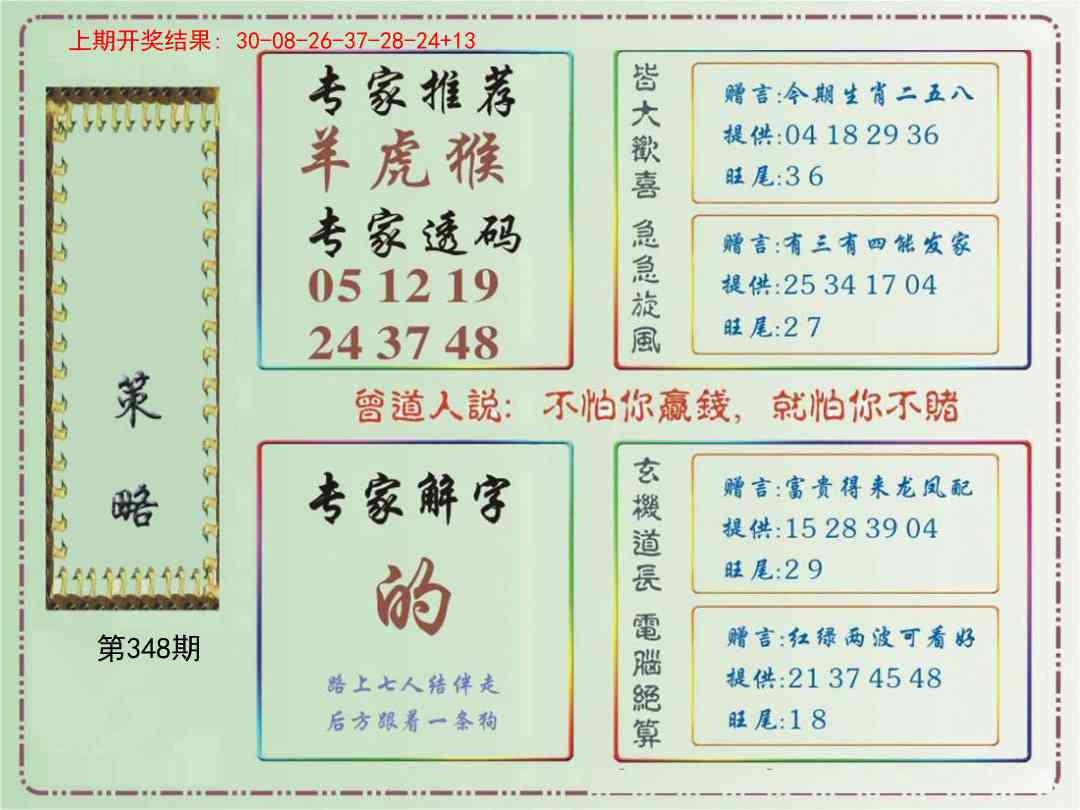 上期开奖结果: 30-08-26-37-28-24+13
策略
第348期
专家推荐
羊虎猴
专家透码
05 12 19
24 37 48
皆大歡喜
赠言:今期生肖二五八
提供:04 18 29 36
旺尾:3 6
急急旋風
赠言:有三有四能发家
提供:25 34 17 04
旺尾:2 7
曾道人説: 不怕你赢錢, 就怕你不賭
专家解字
的
路上七人结伴走
后方跟着一条狗
玄機道長
赠言:富贵得来龙凤配
提供:15 28 39 04
旺尾:2 9
電腦絕算
赠言:红绿两波可看好
提供:21 37 45 48
旺尾:1 8